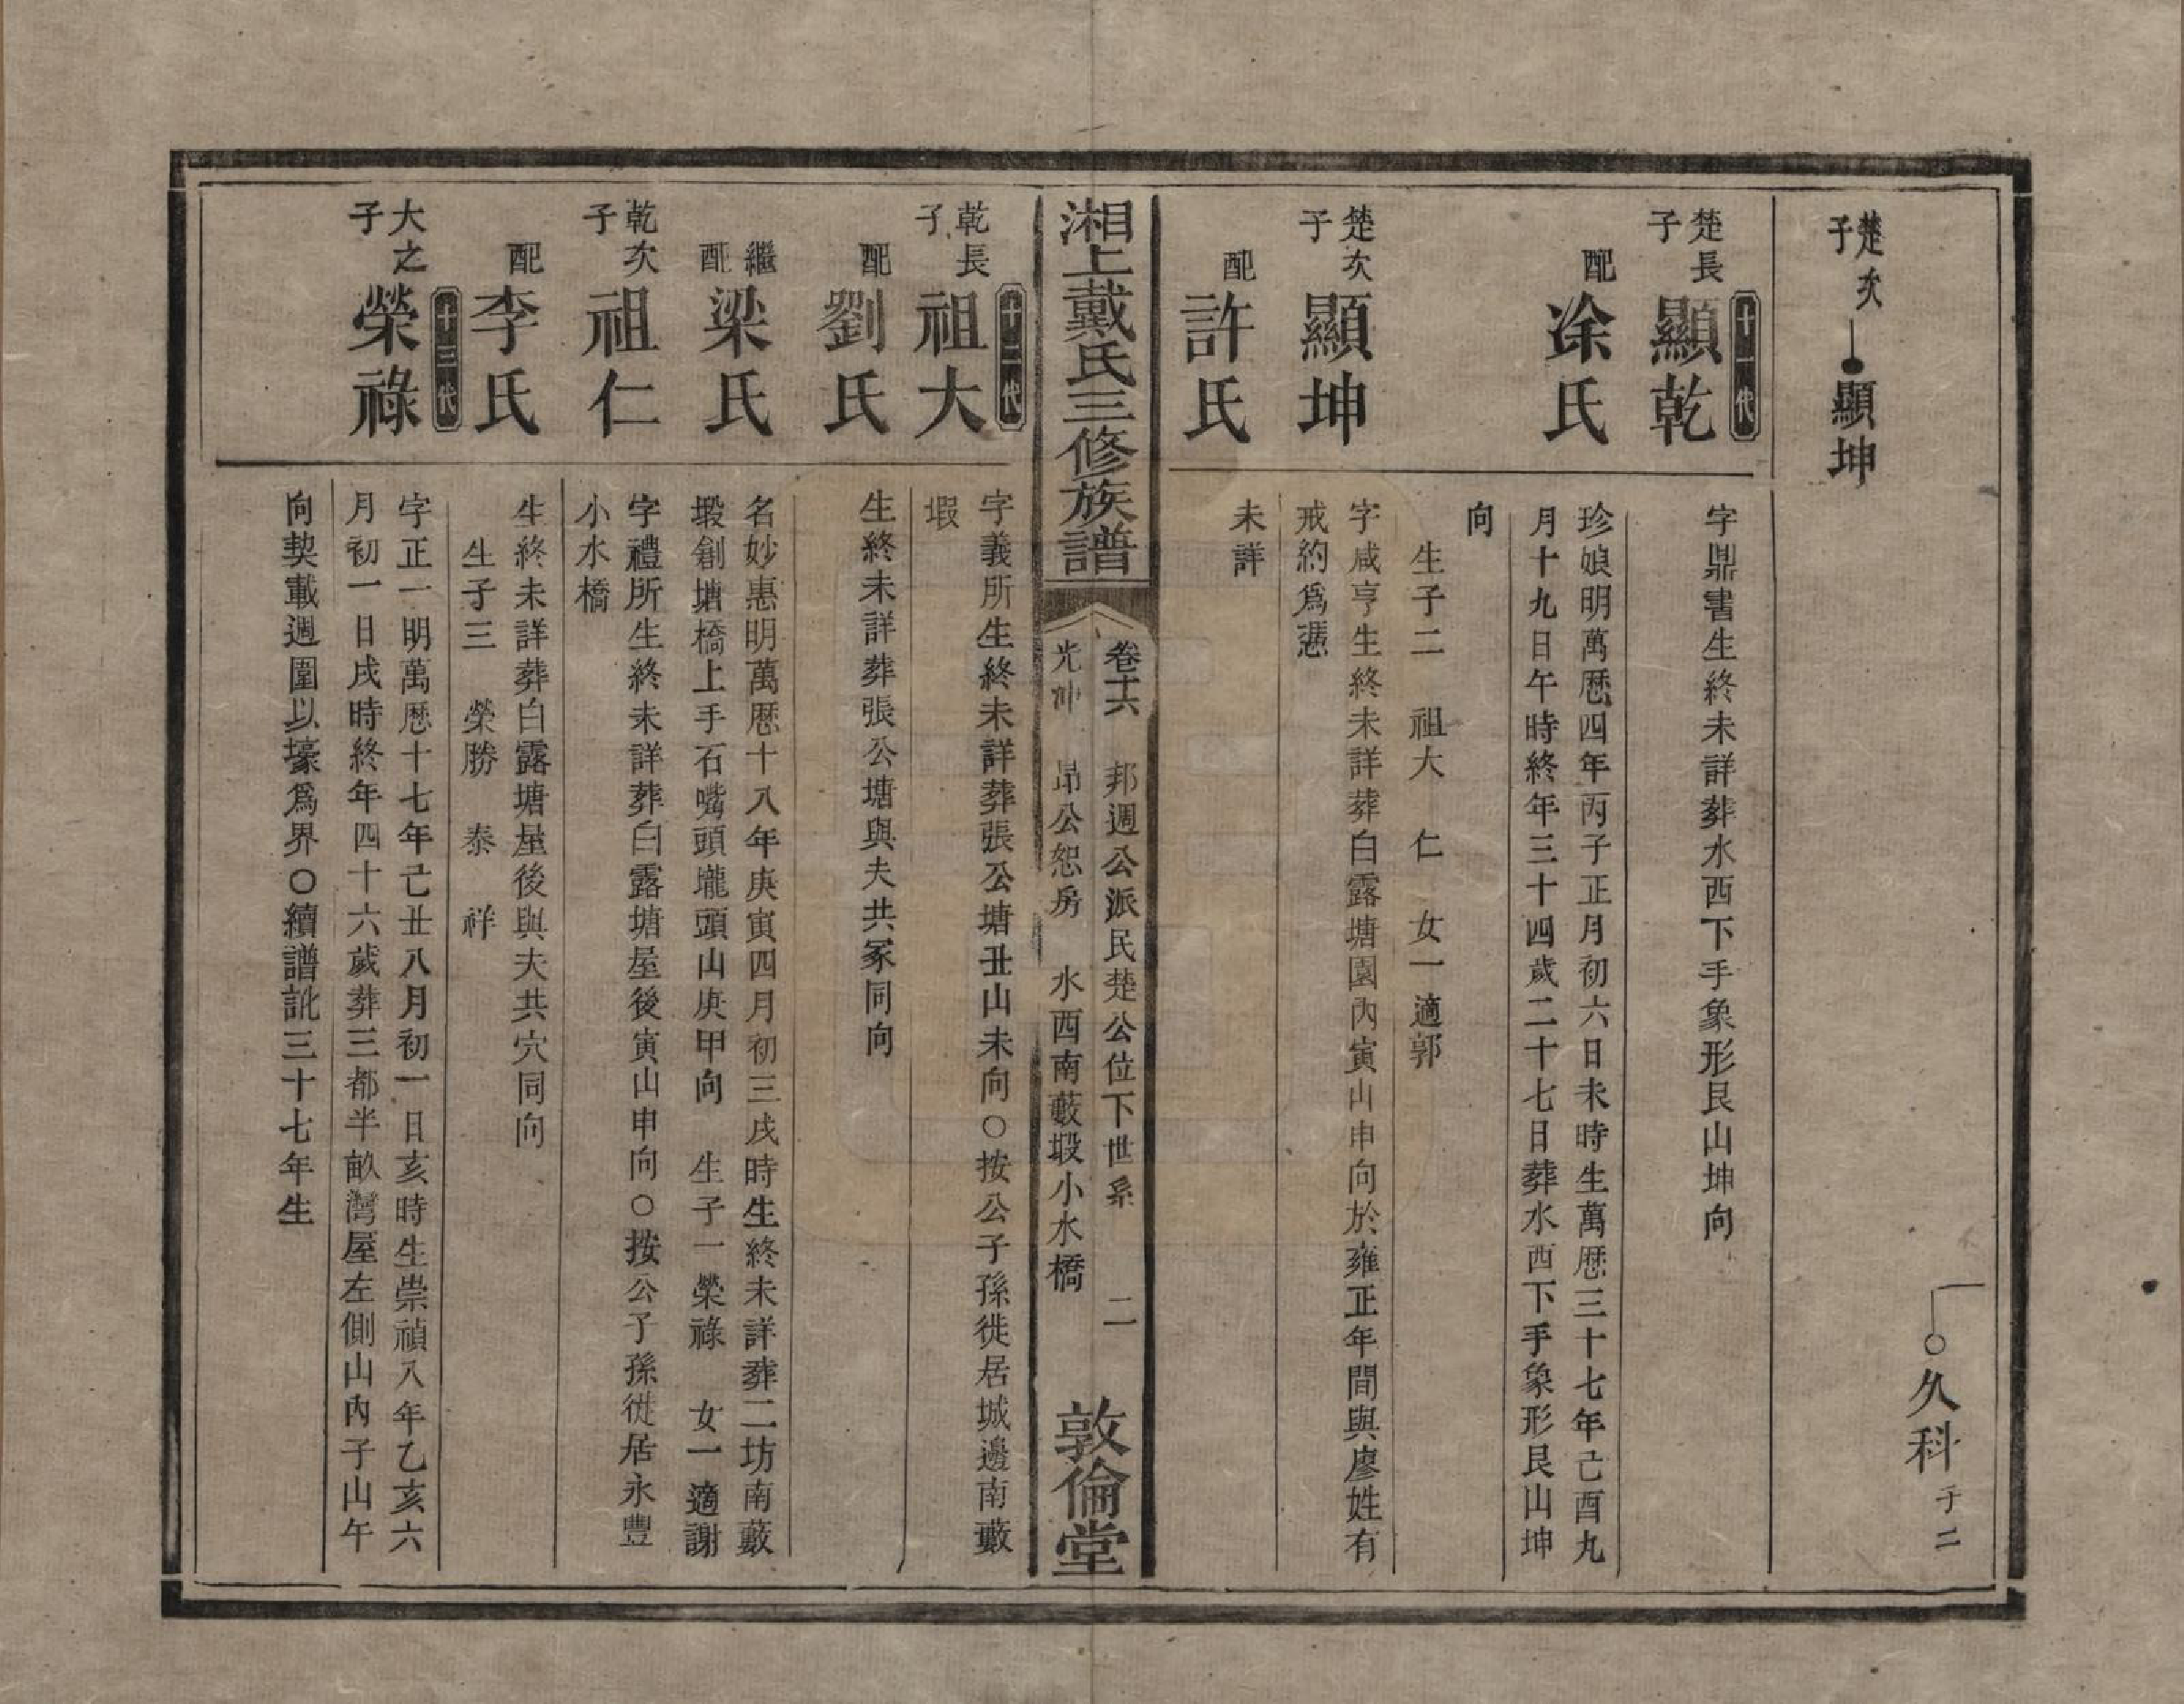 楚次子 顯坤
久科 子二
十一代
楚長子 顯乾
字鼎書生終未詳葬水西下手象形艮山坤向
配 涂氏
珍娘明萬厯四年丙子正月初六日未時生萬厯三十七年己酉九
月十九日午時終年三十四歲二十七日葬水西下手象形艮山坤
向
生子二 祖大 仁 女一適郭
楚次子 顯坤
字咸亨生終未詳葬白露塘園內寅山申向於雍正年間與廖姓有
戒約爲憑
配 許氏
未詳
湘上戴氏三修族譜
卷十六 邦週公派民楚公位下世系 二
光坤 昂公恕房 水西南藪塅小水橋
敦倫堂
十二代
乾長子 祖大
字義所生終未詳葬張公塘丑山未向○按公子孫徙居城邊南藪
塅
配 劉氏
生終未詳葬張公塘與夫共冢同向
繼配 梁氏
名妙惠明萬厯十八年庚寅四月初三戌時生終未詳葬二坊南藪
塅創塘橋上手石嘴頭壠頭山庚甲向 生子一榮祿 女一適謝
乾次子 祖仁
字禮所生終未詳葬白露塘屋後寅山申向○按公子孫徙居永豐
小水橋
配 李氏
生終未詳葬白露塘屋後與夫共穴同向
生子三 榮勝 泰 祥
十三代
大之子 榮祿
字正一明萬厯十七年己丑八月初一日亥時生崇禎八年乙亥六
月初一日戌時終年四十六歲葬三都半畝灣屋左側山內子山午
向契載週圍以壕爲界○續譜訛三十七年生